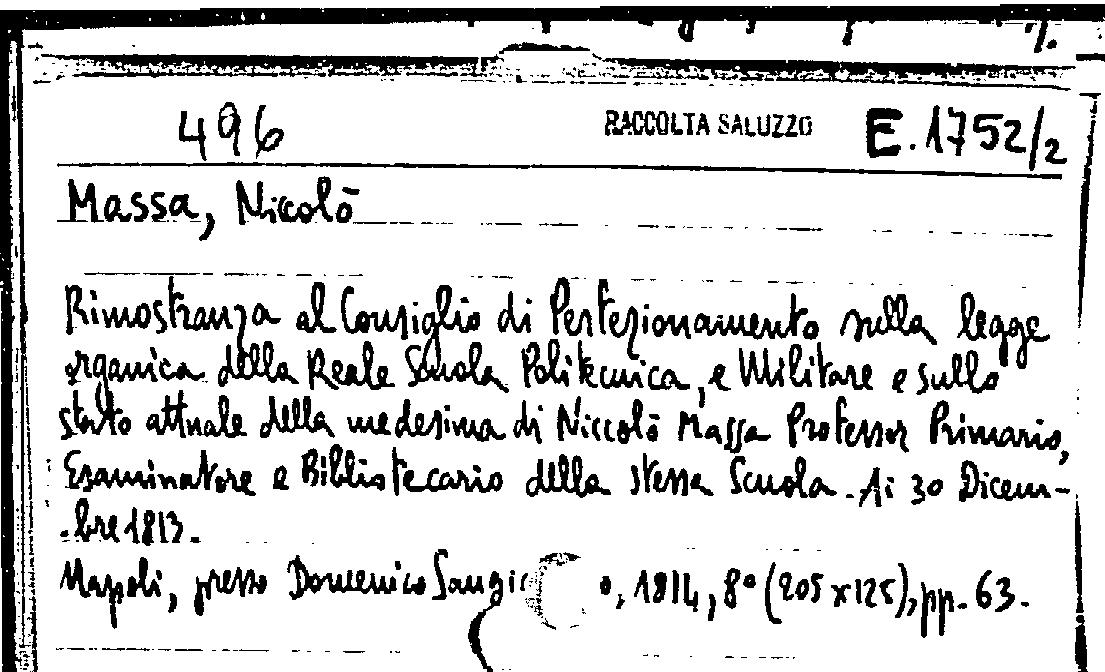 496 RACCOLTA SALUZZO E.1752/2
Massa, Niccolò
Rimostranza al Consiglio di Perfezionamento sulla legge
organica della Reale Scuola Politecnica, e Militare e sullo
stato attuale della medesima di Niccolò Massa Professor Primario,
Esaminatore e Bibliotecario della stessa Scuola. Ai 30 Dicem-
-bre 1813.
Napoli, presso Domenico 1814, 8° (205 x 125), pp. 63.